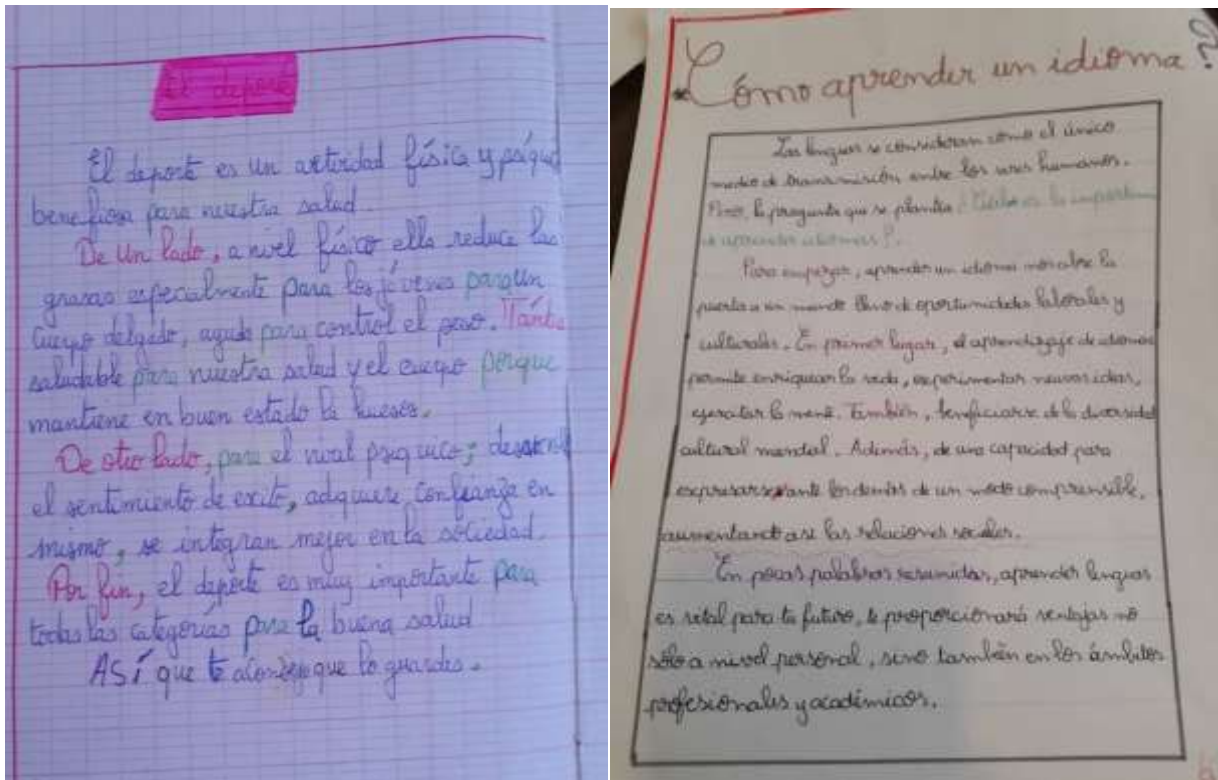 El deporte
El deporte es un actividad física y psíqui
beneficiosa para nuestra salud.
De un lado, a nivel físico ella reduce las
grasas especialmente para los jóvenes para un
cuerpo delgado, ayuda para control el peso. También
saludable para nuestra salud y el cuerpo porque
mantiene en buen estado la huesos.
De otro lado, para el nivel psiquico; desarroll
el sentimiento de exito, adquiere confianza en
mismo, se integran mejor en la sociedad.
Por fin, el deporte es muy importante para
todas las categorías para la buena salud
ASÍ que te aconsejo que lo guardes.
Cómo aprender un idioma?
Las lenguas se consideran como el único
medio de transmisión entre los seres humanos.
Pero, la pregunta que se plantea ¿Cuál es la importan
aprender idiomas?.
Para empezar, aprender un idioma nos abre la
puerta a un mundo lleno de oportunidades laborales y
culturales. En primer lugar, el aprendizaje de idiomas
permite enriquecer la vida, experimentar nuevas ideas,
ejercitar la mente. También, beneficiarse de la diversidad
cultural mundial. Además, de una capacidad para
expresarse ante los demás de un modo comprensible,
aumentando así las relaciones sociales.
En pocas palabras resumidas, aprender lenguas
es vital para tu futuro, te proporcionará ventajas no
sólo a nivel personal, sino también en los ámbitos
profesionales y académicos.